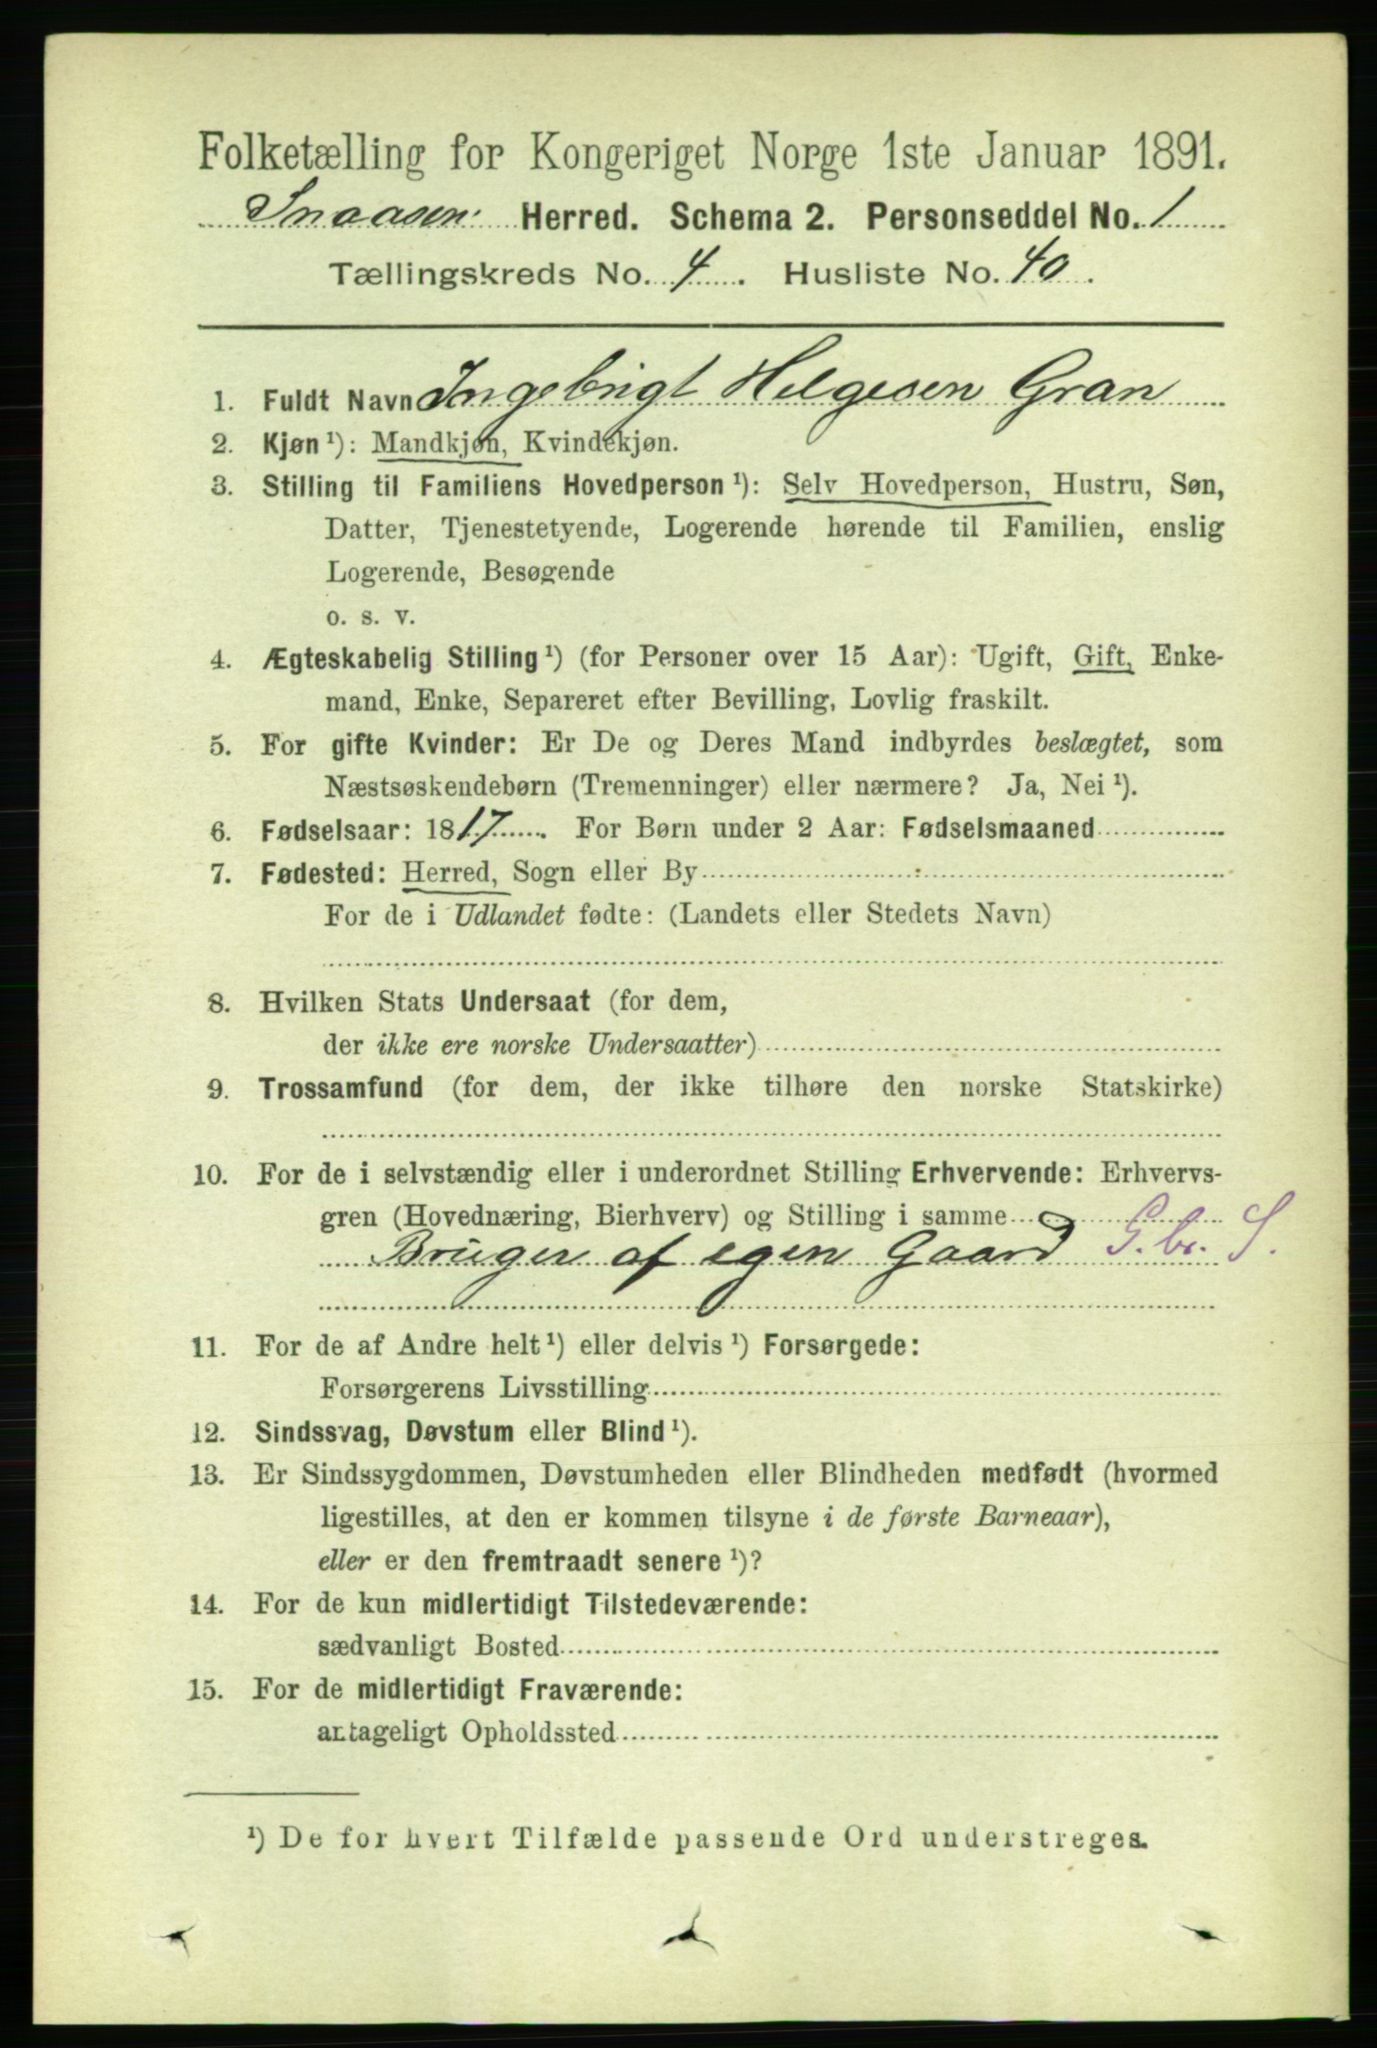 Folketælling for Kongeriget Norge 1ste Januar 1891.
Snaasen Herred. Schema 2. Personseddel No. 1
Tællingskreds No. 4. Husliste No. 40.
1. Fuldt Navn Ingebrigt Helgesen Gran
2. Kjøn¹): Mandkjøn, Kvindekjøn.
3. Stilling til Familiens Hovedperson¹): Selv Hovedperson, Hustru, Søn,
Datter, Tjenestetyende, Logerende hørende til Familien, enslig
Logerende, Besøgende
o. s. v.
4. Ægteskabelig Stilling¹) (for Personer over 15 Aar): Ugift, Gift, Enke-
mand, Enke, Separeret efter Bevilling, Lovlig fraskilt.
5. For gifte Kvinder: Er De og Deres Mand indbyrdes beslægtet, som
Næstsøskendebørn (Tremenninger) eller nærmere? Ja, Nei¹).
6. Fødselsaar: 1817. For Børn under 2 Aar: Fødselsmaaned
7. Fødested: Herred, Sogn eller By
For de i Udlandet fødte: (Landets eller Stedets Navn)
8. Hvilken Stats Undersaat (for dem,
der ikke ere norske Undersaatter)
9. Trossamfund (for dem, der ikke tilhøre den norske Statskirke)
10. For de i selvstændig eller i underordnet Stilling Erhvervende: Erhvervs-
gren (Hovednæring, Bierhverv) og Stilling i samme
Bruger af egen Gaard G.br. S.
11. For de af Andre helt¹) eller delvis¹) Forsørgede:
Forsørgerens Livsstilling
12. Sindssvag, Døvstum eller Blind¹).
13. Er Sindssygdommen, Døvstumheden eller Blindheden medfødt (hvormed
ligestilles, at den er kommen tilsyne i de første Barneaar),
eller er den fremtraadt senere¹)?
14. For de kun midlertidigt Tilstedeværende:
sædvanligt Bosted
15. For de midlertidigt Fraværende:
antageligt Opholdssted
¹) De for hvert Tilfælde passende Ord understreges.